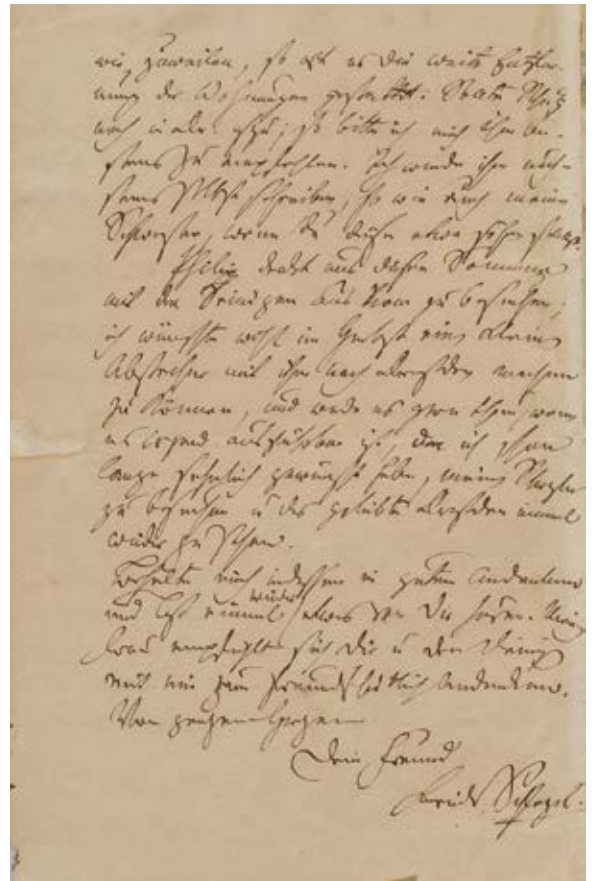 wie zuweilen, so oft es die weite Entfer-
nung der Wohnungen gestattet. Sollte
noch in seyn; so bitte ich mich ihm be-
stens zu empfehlen. Ich werde ihm näch-
stens selbst schreiben, so wie auch meiner
Schwester, wenn Du diese etwa sehen solltest.
Philipp denkt uns diesen Sommer
mit den Seinigen aus Rom zu besuchen;
ich wünschte wohl im Herbst einen kleinen
Abstecher mit ihm nach Dresden machen
zu können, und werde es gern thun, wenn
es irgend ausführbar ist, da ich schon
lange sehnlich gewünscht habe, meine Schwester
zu besuchen u das geliebte Dresden einmal
wieder zu sehen.
Erhalte mich indessen in gutem Andenken
und laß einmal wieder etwas von Dir hören. Meine
Frau empfiehlt sich Dir u den Deinigen
mit mir zum freundschaftlichen Andenken.
Von ganzem Herzen
Dein Freund
Friedr. Schlegel.